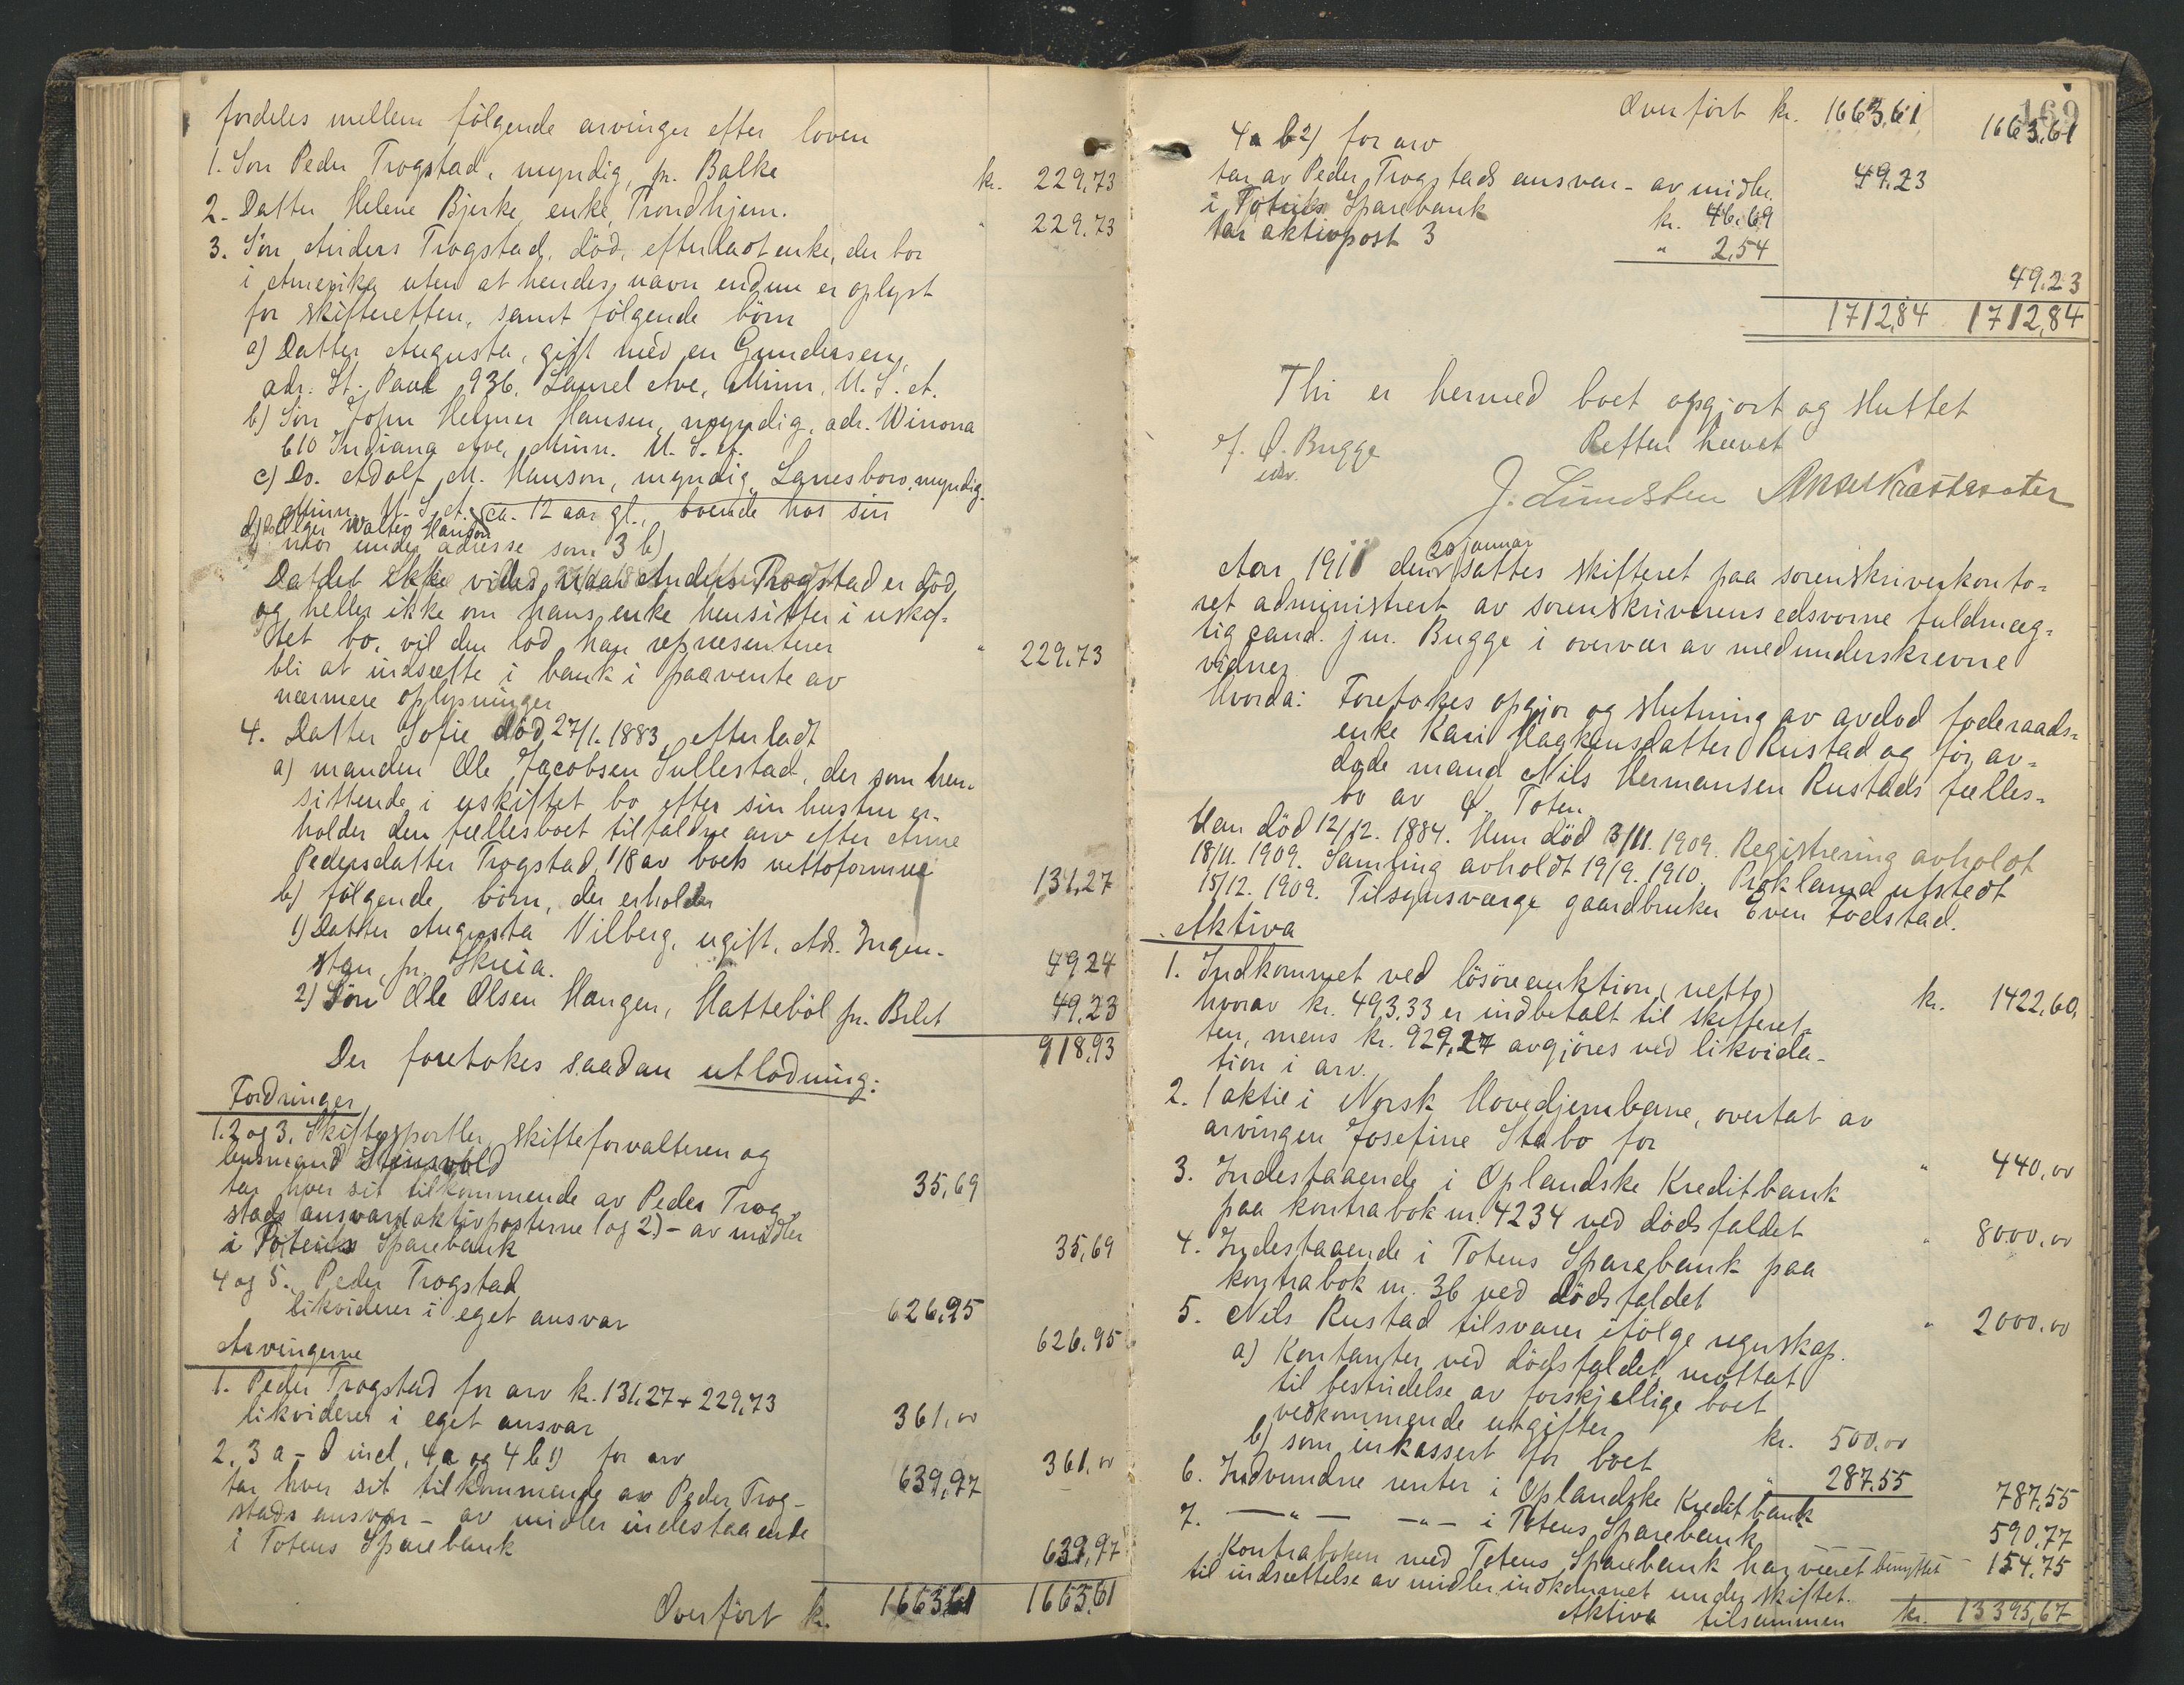 fordeles mellem følgende arvinger efter loven
1. Søn Peder Trogstad, myndig, pr. Balke kr. 229,73
2. Datter Helene Bjerke, enke, Trondhjem. " 229,73
3. Søn Anders Trogstad, död, efterladt enke, der bor
i Amerika uten at hendes navn endnu er oplyst
for skifteretten, samt følgende börn
a) Datter Augusta, gift med en Gundersen,
adr. St. Paul 936, Laurel Ave, Minn. U. S. A.
b) Søn John Helmer Hansen, myndig, adr. Winona
610 Indiana Ave, Minn. U. S. A.
c) Do. Adolf M. Hanson, myndig, Lanesboro, myndig.
Minn. U. S. A. ca. 12 aar gl., boende hos sin
d) Do Walter Hanson
mor under adresse som 3 b)
Da det ikke vides, naar Anders Trogstad er död,
og heller ikke om hans enke hensitter i uskif-
tet bo, vil den lod han repræsenterer " 229,73
bli at indsætte i bank i paavente av
nærmere oplysninger
4. Datter Sofie död 27/1. 1883, efterladt
a) manden Ole Jacobsen Sullestad, der som hen-
sittende i uskiftet bo efter sin hustru er-
holder den fællesboet tilfaldne arv efter Anne
Pedersdatter Trogstad, 1/8 av boets nettoformue 131,27
b) følgende börn, der erholder
1) Datter Augusta Vilberg, ugift. Adr. Ingen-
stan, pr. Skreia. 49,24
2) Søn Ole Olsen Haugen, Hatteböl pr. Bilit 49,23
918,93
Der foretokes saadan utlodning:
Fordringer
1. 2 og 3. Skiftesportler, skifteforvalteren og
lensmand Stensvold 35,69
tar hver sit tilkommende av Peder Trog-
stads ansvar (aktivposterne 1 og 2) - av midler
i Totens Sparebank 35,69
4 og 5. Peder Trogstad 626,95
likviderer i eget ansvar 626,95
Arvingerne
1. Peder Trogstad for arv kr. 131,27 + 229,73 361,00
likviderer i eget ansvar 361,00
2, 3 a - d incl, 4 a og 4 b 1) for arv 639,97
tar hver sit tilkommende av Peder Trog-
stads ansvar - av midler indestaaende
i Totens Sparebank 639,97
Overført kr. 1663,61 1663,61
169
Overført kr. 1663,61 1663,61
4 a b 2) for arv 49,23
tar av Peder Trogstads ansvar - av midler
i Totens Sparebank kr. 46,69
tar aktivpost 3 " 2,54
49,23
1712,84 1712,84
Thi er hermed boet opgjort og sluttet
Retten hævet
O. Bugge
edsv.
J. Lundsten
Aar 1911 den 20 januar sattes skifteret paa sorenskriverkonto-
ret administrert av sorenskriverens edsvorne fuldmæg-
tig cand. jur. Bugge i overvær av medunderskrevne
vidner
Hvorda: Foretokes opgjør og slutning av avdød føderaads-
enke Kari Haakensdatter Rustad og før av-
døde mand Nils Hermansen Rustads fælles-
bo av Ø. Toten.
Han död 12/12. 1884. Hun död 3/11. 1909. Registrering avholdt
18/11. 1909. Samling avholdt 19/9. 1910. Proklama utstedt
15/12. 1909. Tilsynsværge gaardbruker Even Fodstad.
Aktiva
1. Indkommet ved lösöreauktion (netto) kr. 1422,60,
hvorav kr. 493,33 er indbetalt til skifteret-
ten, mens kr. 929,27 avgjöres ved likvida-
tion i arv.
2. 1 aktie i Norsk Hovedjernbane, overtat av
arvingen Josefine Stabo for " 440,00
3. Indestaaende i Oplandske Kreditbank
paa kontrabok nr. 4234 ved dödsfaldet " 8000,00
4. Indestaaende i Totens Sparebank paa
kontrabok nr. 36 ved dödsfaldet " 2000,00
5. Nils Rustad tilsvarer ifölge regnskap.
a) Kontanter ved dödsfaldet, mottat
til bestridelse av forskjellige boet
vedkommende utgifter kr. 500,00
b) som inkassert for boet " 287,55
787,55
6. Indvundne renter i Oplandske Kreditbank 590,77
7. — " — — " — i Totens Sparebank 154,75
Kontraboken med Totens Sparebank har været benyttet
til indsættelse av midler indkommet under skiftet.
Aktiva tilsammen kr. 13395,67